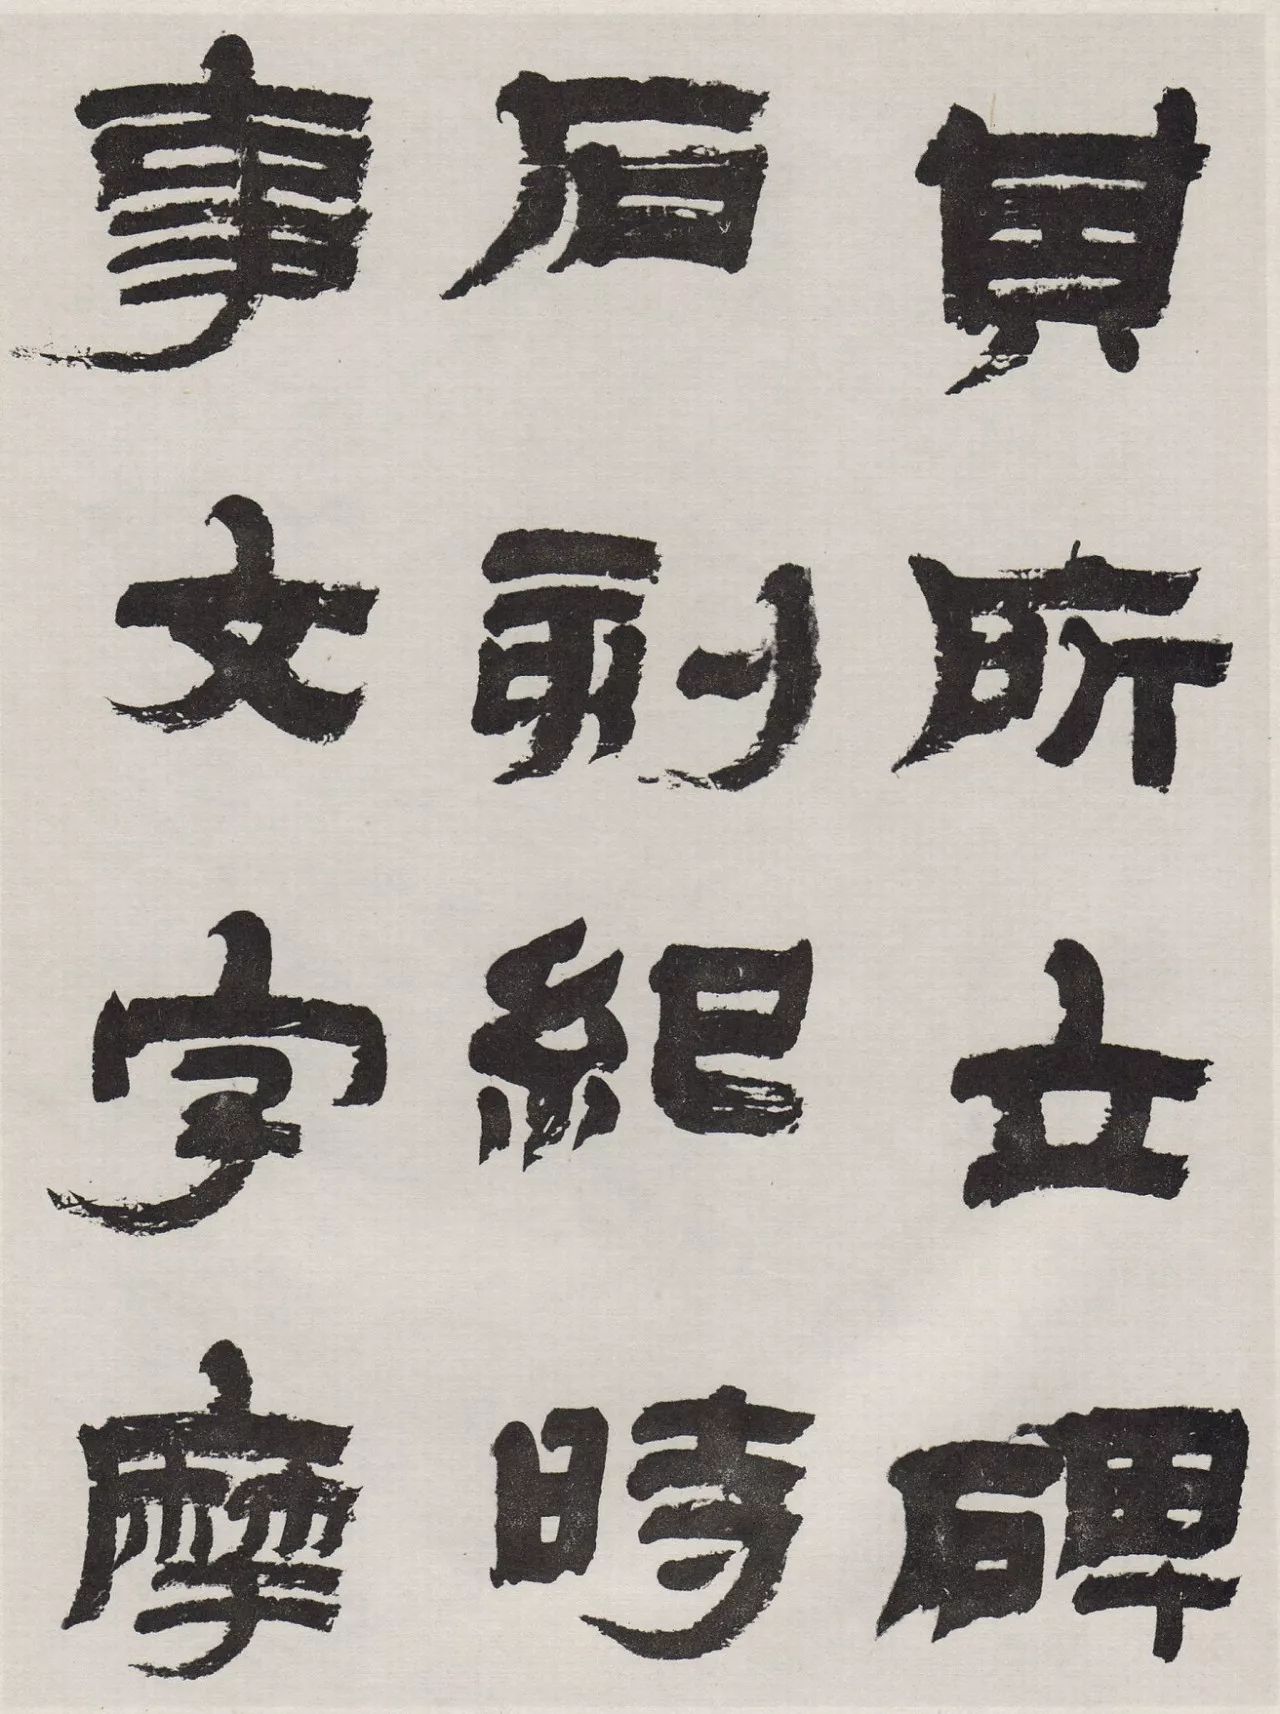 其所立碑
石刻紀時
事文字摩